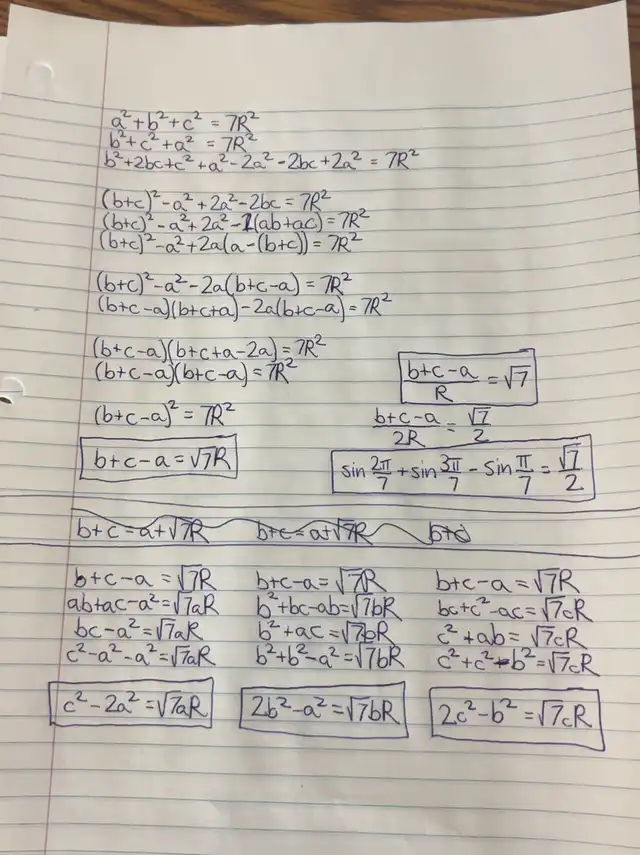 a² + b² + c² = 7R²
b² + c² + a² = 7R²
b² + 2bc + c² + a² - 2a² - 2bc + 2a² = 7R²
(b+c)² - a² + 2a² - 2bc = 7R²
(b+c)² - a² + 2a² - 2(ab+ac) = 7R²
(b+c)² - a² + 2a(a - (b+c)) = 7R²
(b+c)² - a² - 2a(b+c-a) = 7R²
(b+c-a)(b+c+a) - 2a(b+c-a) = 7R²
(b+c-a)(b+c+a-2a) = 7R²
(b+c-a)(b+c-a) = 7R²
(b+c-a)² = 7R²
b+c-a = √7R
(b+c-a)/R = √7
(b+c-a)/2R = √7/2
sin 2π/7 + sin 3π/7 - sin π/7 = √7/2
b+c = a+√7R b+c = a+√7R b+c
b+c-a = √7R b+c-a = √7R b+c-a = √7R
ab+ac-a² = √7aR b²+bc-ab = √7bR bc+c²-ac = √7cR
bc-a² = √7aR b²+ac = √7bR c²+ab = √7cR
c²-a²-a² = √7aR b²+b²-a² = √7bR c²+c²-b² = √7cR
c²-2a² = √7aR 2b²-a² = √7bR 2c²-b² = √7cR